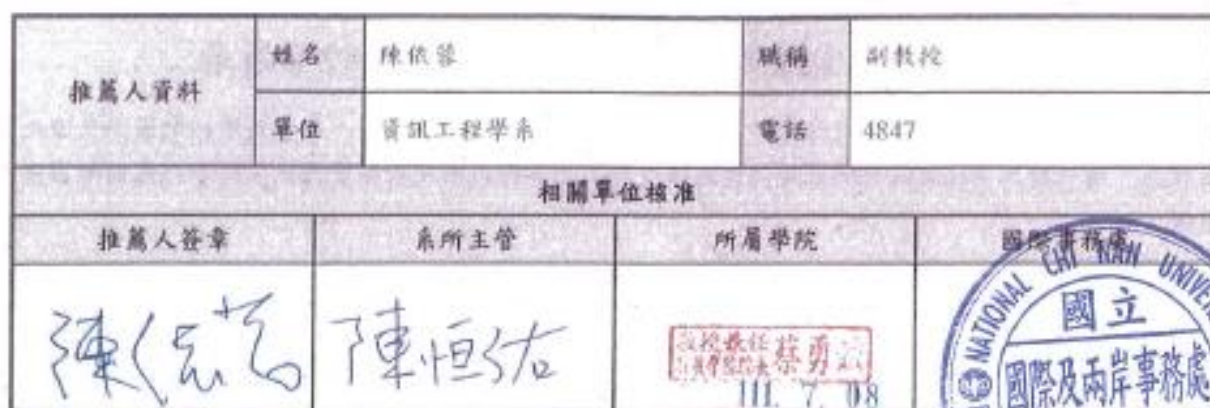 推薦人資料
姓名 陳依蓉 職稱 副教授
單位 資訊工程學系 電話 4847
相關單位核准
推薦人簽章 系所主管 所屬學院 國際事務處
陳依蓉 陳恒佑 蔡勇
111. 7. 08
NATIONAL CHI NAN
國立
國際及兩岸事務處